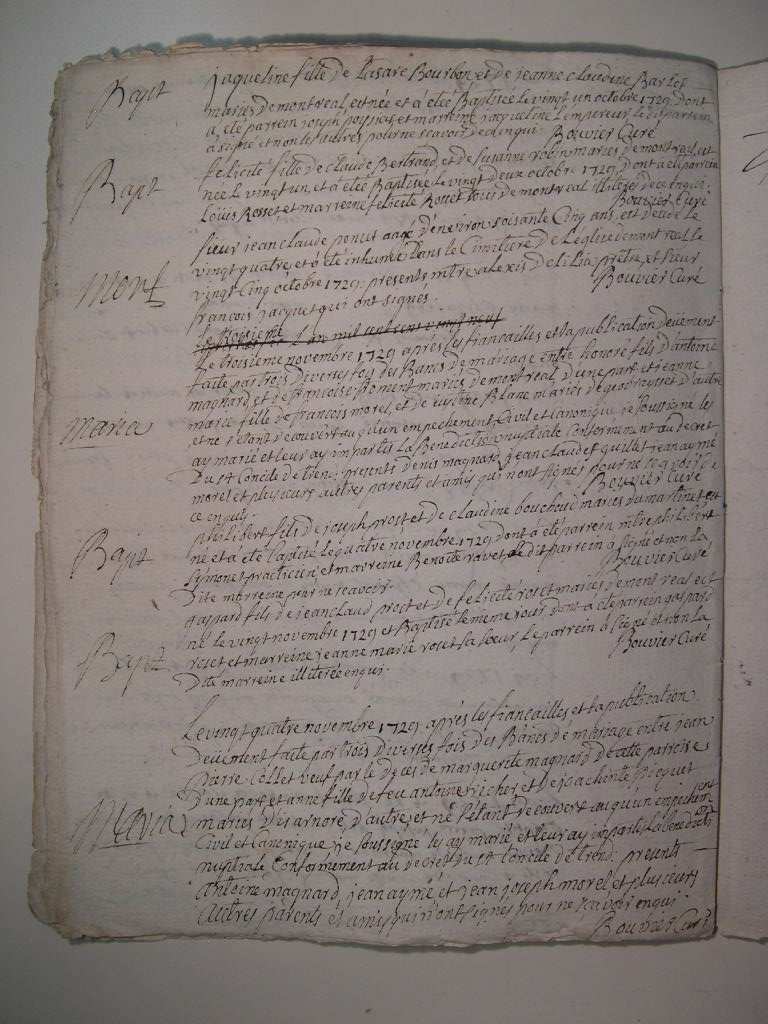 Bapt
jaqueline fille de Lasare Bourbon et de jeanne claudine Barlet
mariés de montreal, est née et a été Baptisée le vingt un octobre 1729, dont
a été parrein joseph et marreine jacqueline Lempereur, le dit parrein
a signé et non les autres pour ne scavoir de ce enquis. Bouvier Curé
Bapt
felicité fille de claude Bertrand, et de susanne robin mariés de montreal, est
née le vingt un et a été Baptisée le vingt deux octobre 1729, dont a été parrein
Louis Rosset et marreine felicité Rosset tous de montreal illiterés de ce enquis
Bouvier Curé
Mort
sieur jean claude ponut aagé d'environ soisante Cinq ans, est decedé le
vingt quatre, et a été inhumé Dans le Cimitiere De L'eglise de montreal le
vingt Cinq octobre 1729, presents mre alexis de lilia prêtre, et sieur
françois jacquet qui ont signés. Bouvier Curé
L'an mil sept cent vingt neuf
Le troisieme novembre 1729 après les fiançailles et la publication deuement
faite par trois diverses fois des Bancs de mariage entre honoré fils d'antoine
magnard et de françoise froment mariés de montreal, d'une part, et jeanne
marie fille de francois morel, et de Blanc mariés de d'autre
Maria
et ne s'etant decouvert auqu'un empechement Civil et Canonique, je soussigné les
ay marié et leur ay imparti La Benediction nuptiale Conformement au decret
Du st Concile de trente, presents denis magnard, jean claude quillet, jean aymé
morel et plusieurs autres parents et amis qui n'ont signés pour ne scavoir de
ce enquis. Bouvier Curé
Bapt
philibert fils de joseph prost et de claudine bouchoud mariés du martinet est
né et a été baptisé le quatre novembre 1729 dont a été parrein mtre philibert
Symonet practicien, et marreine Benoite ravet, le dit parrein a signé et non la
Dite marreine pour ne scavoir. Bouvier Curé
Bapt
gaspard fils de jean claud prost et de felicité roset mariés de mont real est
né le vingt novembre 1729 et Baptisé le meme jour, dont a été parrein gaspard
roset et marreine jeanne marie roset sa sœur, Le parrein a signé et non la
Dite marreine illiterée enquise. Bouvier Curé
Le vingt quatre novembre 1729 après les fiançailles et la publication
Deuement faite par trois diverses fois des Bancs de mariage entre jean
pierre Collet veuf par le déces de marguerite magnard de cette parroisse
D'une part, et anne fille de feu antoine richer, et de jacinthe picquet
Maria
mariés D'isarnore, d'autre, et ne s'etant decouvert auqu'un empichement
Civil et Canonique, je soussigné les ay marié et leur ay imparti la benediction
nuptiale Conformement au decret du st Concile de trend, presents
antoine magnard, jean aymé et jean joseph morel et plusieurs
Autres parents et amis qui n'ont signés pour ne scavoir enquis.
Bouvier Curé